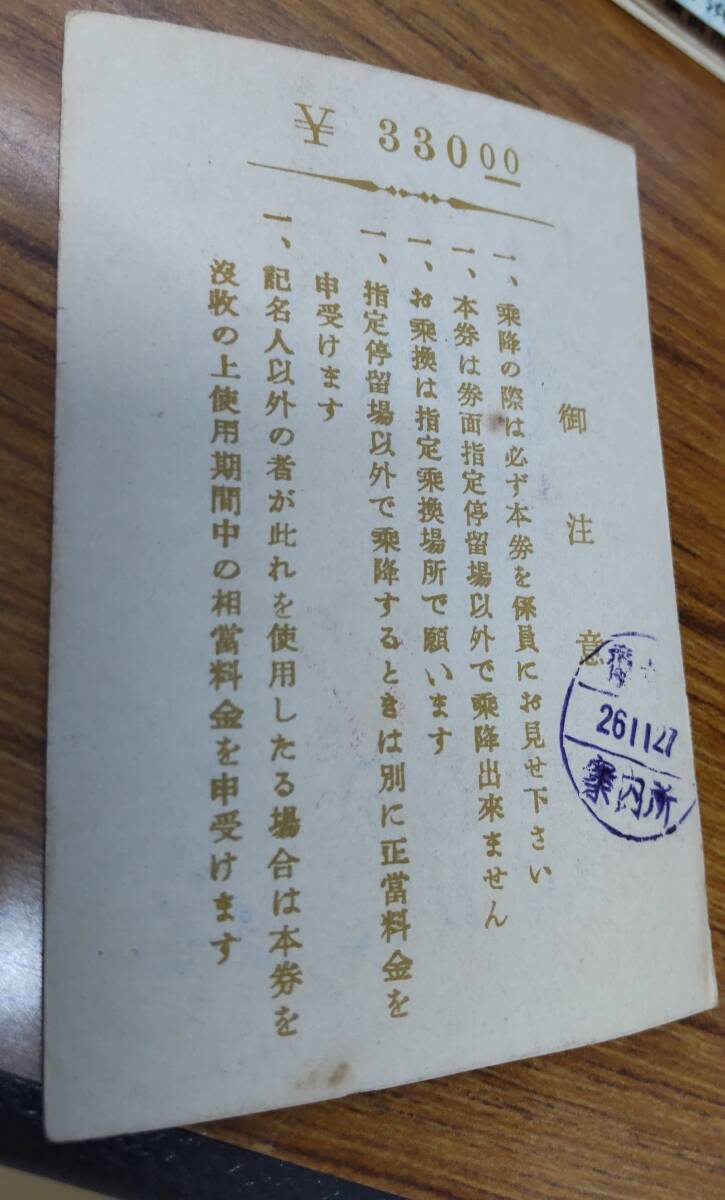 ¥ 33000
御注意
一、乗降の際は必ず本券を係員にお見せ下さい
一、本券は券面指定停留場以外で乗降出來ません
一、お乗換は指定乗換場所で願います
一、指定停留場以外で乗降するときは別に正當料金を
申受けます
一、記名人以外の者が此れを使用したる場合は本券を
沒收の上使用期間中の相當料金を申受けます
26.11.27
案内所